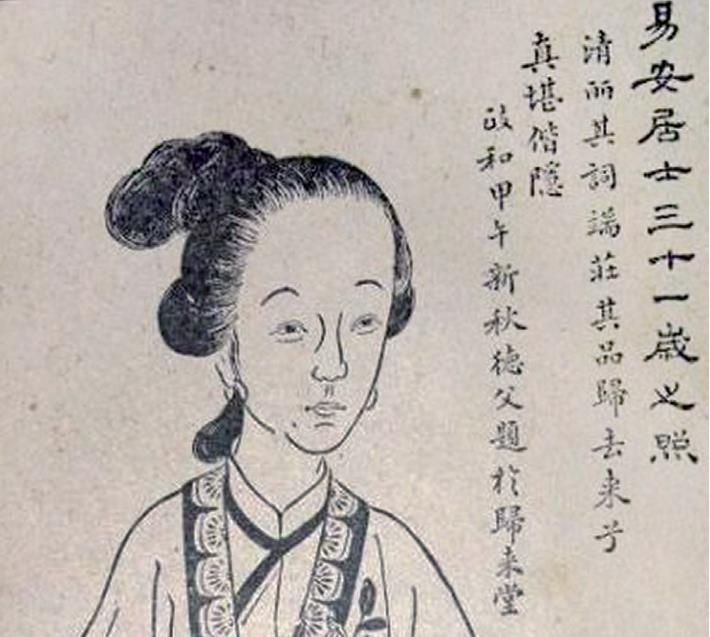 易安居士三十一歲之照
清麗其詞端莊其品歸去来子
真堪偕隱
政和甲午新秋德父題於歸来堂